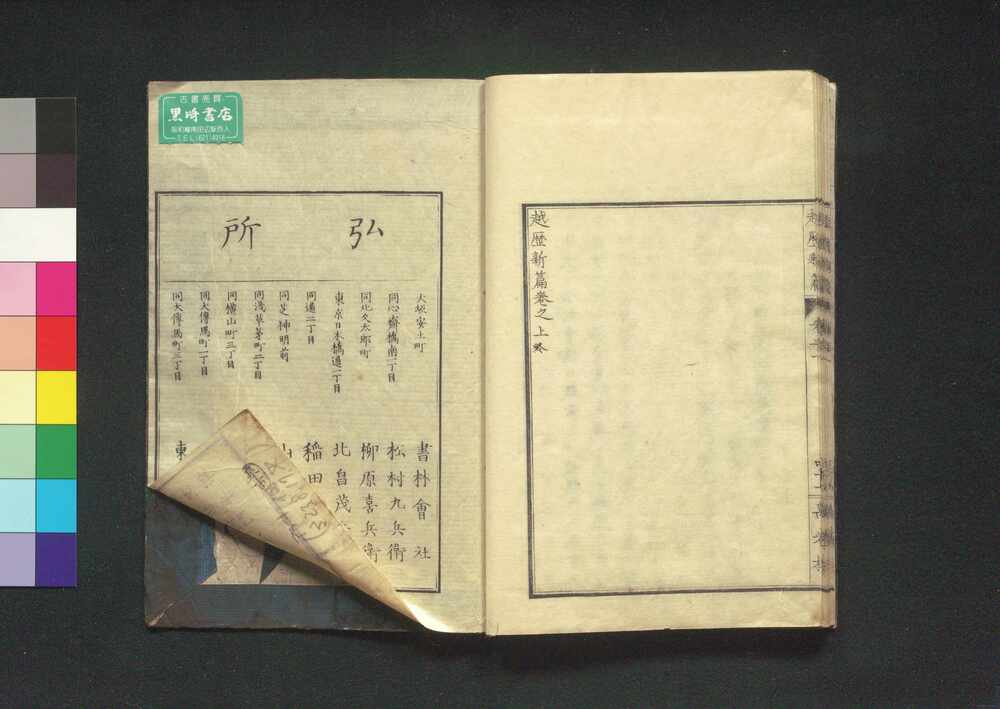 越歴新篇卷之上終
弘所
大坂安土町
書林會社
同心齋橋南一丁目
松村九兵衛
同北久太郎町
柳原喜兵衛
東京日本橋通一丁目
北畠茂
同通二丁目
稲田
同芝神明前
同淺草茅町二丁目
同横山町三丁目
同大傳馬町二丁目
同大傳馬町三丁目
東
古書売買
黒崎書店